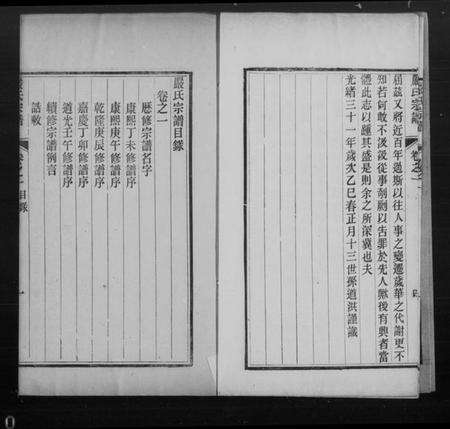 相茲又將近百年過斯以往人事之變遷歲華之代謝更不
知若何敢不汲汲從事剞劂以告罪於先人歟後有興者當
體此志以踵其盛是則余之所深冀也夫
光緒三十一年歲次乙巳春正月十三世孫道洪謹識
嚴氏宗譜
卷之一
嚴氏宗譜目錄
卷之一
歷修宗譜名字
康熙丁未修譜序
康熙庚午修譜序
乾隆庚辰修譜序
嘉慶丁卯修譜序
道光壬午修譜序
續修宗譜例言
誥敕
嚴氏宗譜
卷之一 目錄
一